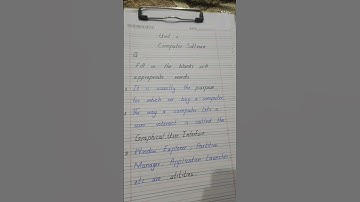 Unit 2
Computer Software
Q
Fill in the blanks with
appropriate words
1 It is usually the purpose
for which we buy a computer.
2 The way a computer lets a
user interact is called the
Graphical User Interface
3 Window Explorer, Partition
Manager, Application Launcher
etc are utilities.